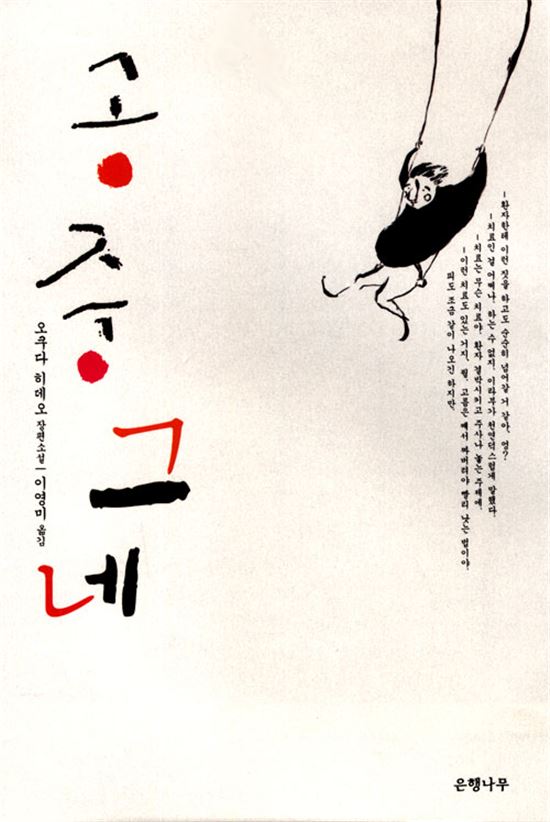 공중그네
오쿠다 히데오 장편소설 | 이영미 옮김
- 환자한테 이런 짓을 하고도 순순히 넘어갈 거 같아, 엉?
- 치료인 걸 어쩌나, 하는 수 없지. 이라부가 천연덕스럽게 말했다.
- 치료는 무슨 치료야. 환자 결박시키고 주사나 놓는 주제에.
- 이런 치료도 있는 거지, 뭘. 고름은 째서 짜버려야 빨리 낫는 법이야.
피도 조금 같이 나오긴 하지만.
은행나무